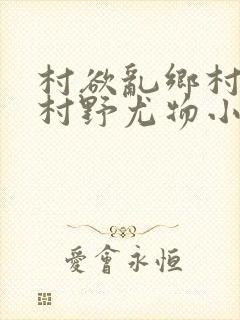 村欲亂鄉村
村野尤物小
愛會永恒